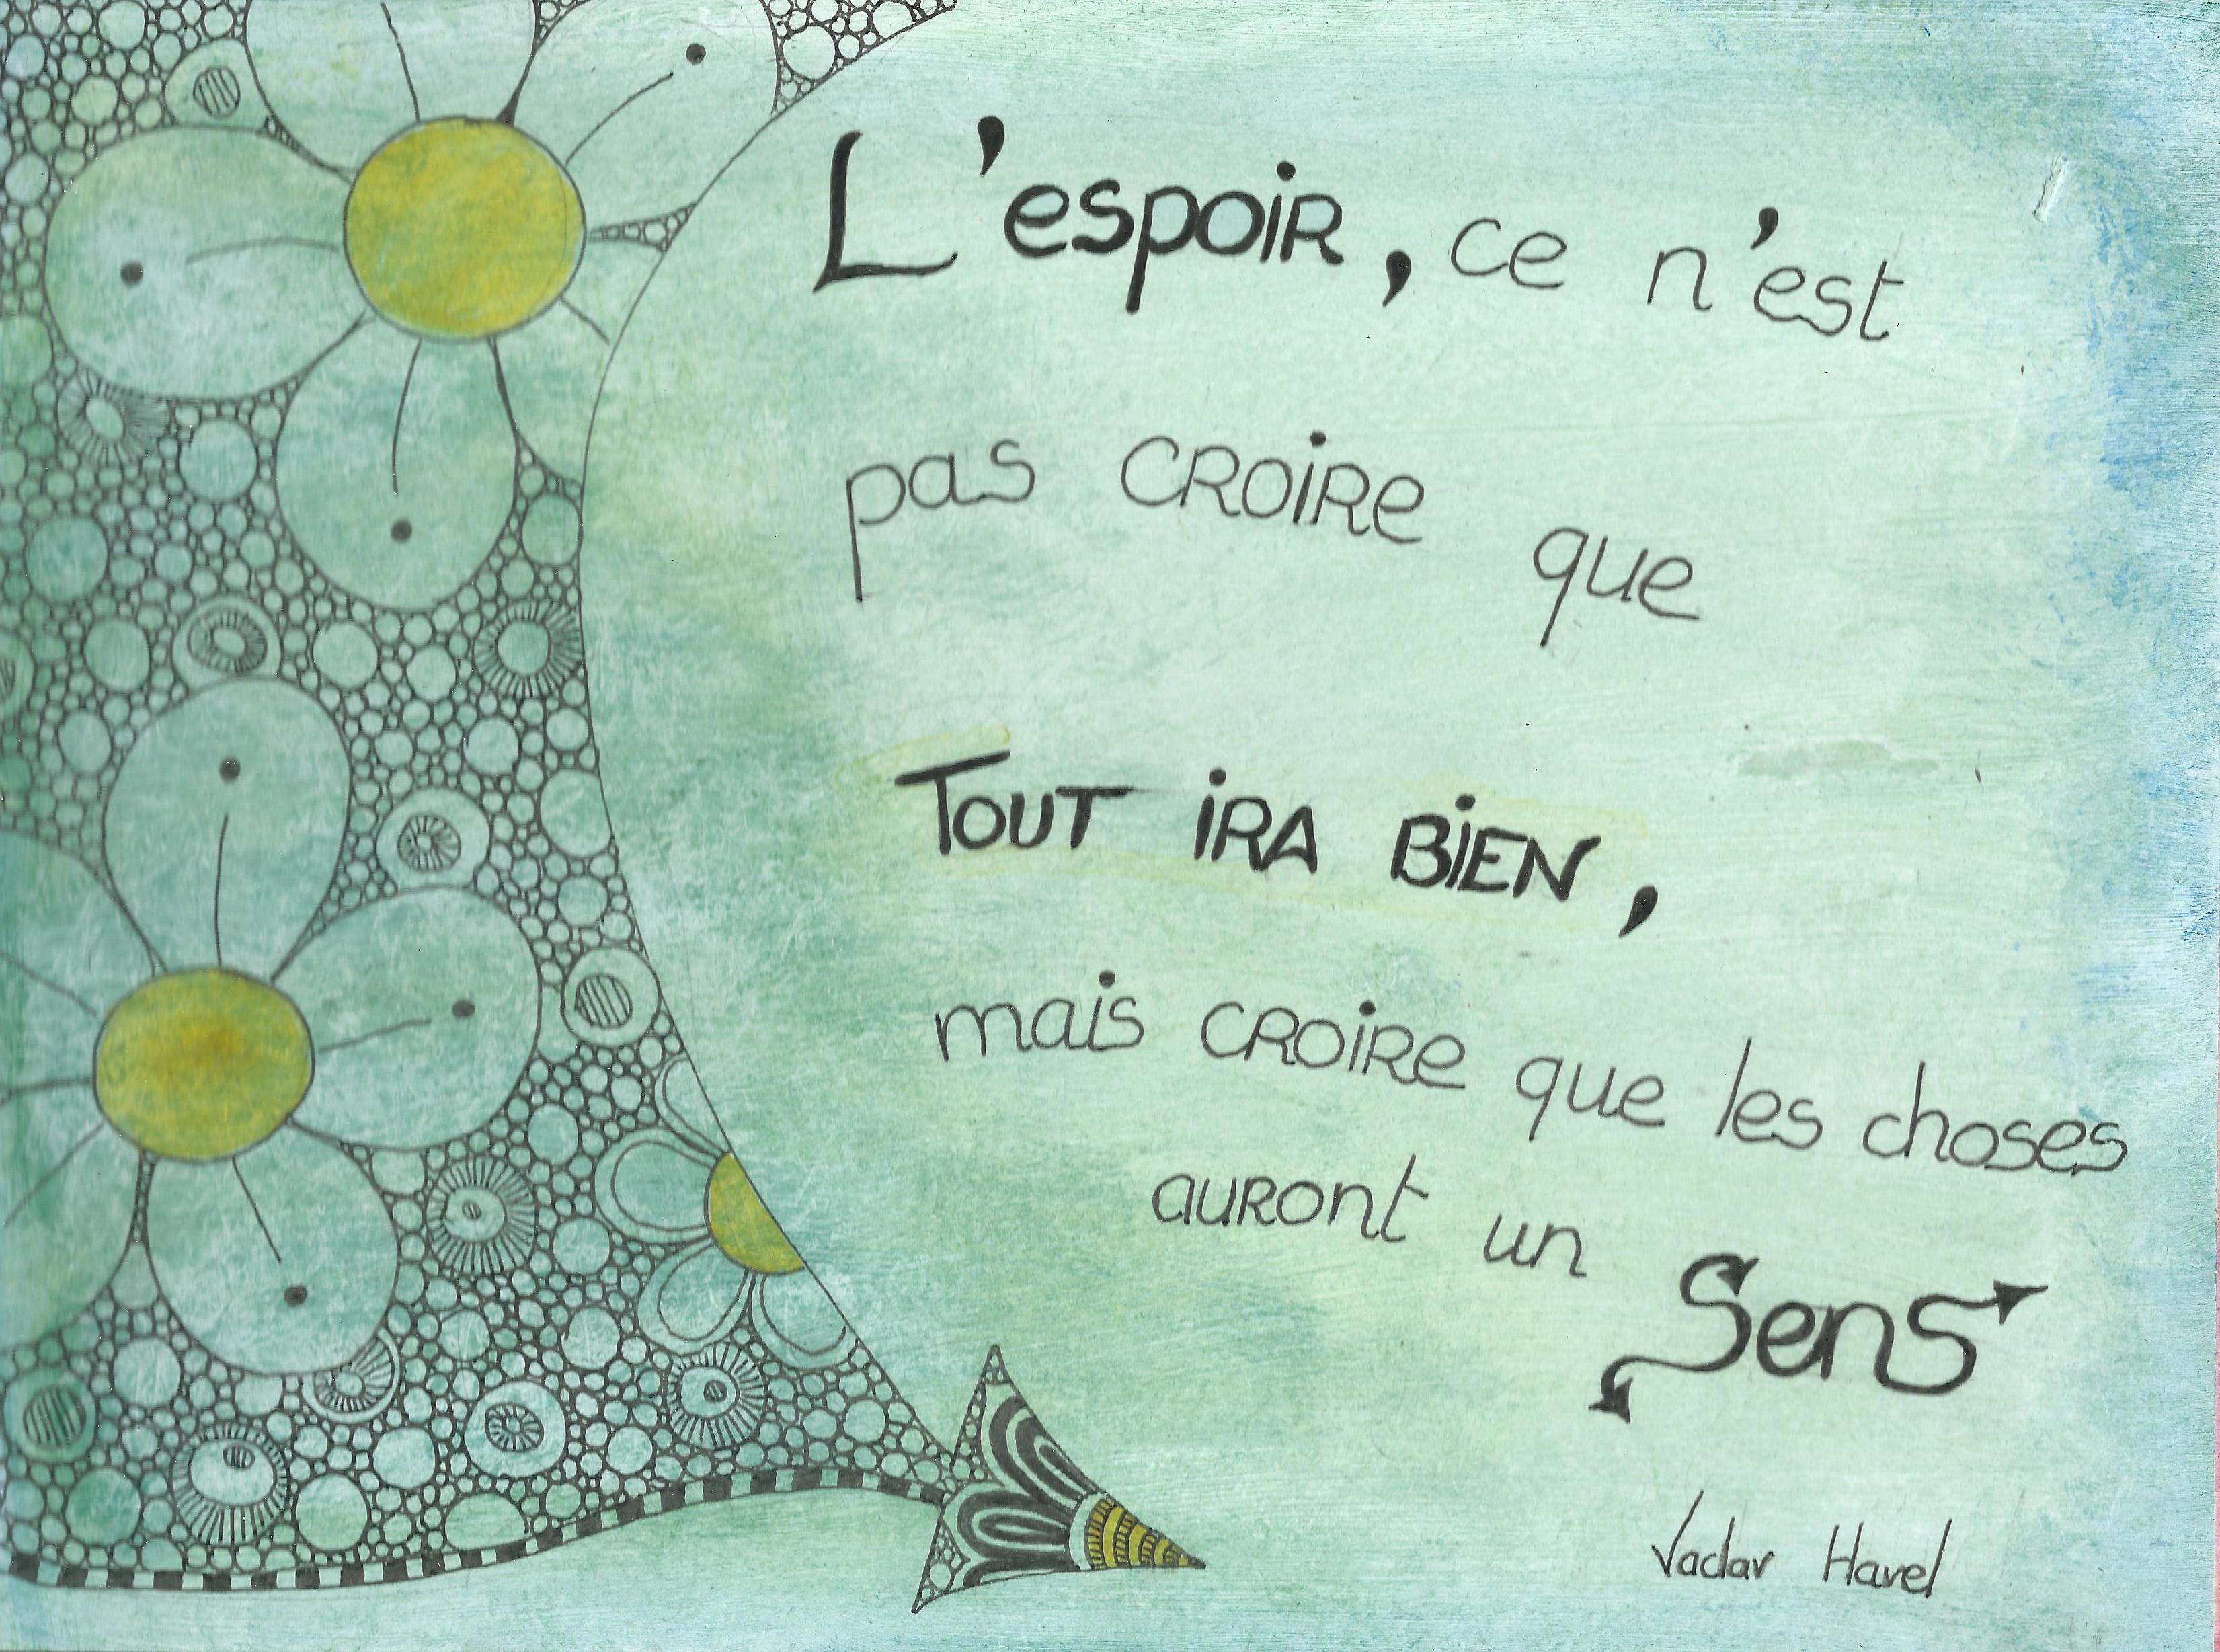 L'espoir, ce n'est
pas croire que
Tout ira bien,
mais croire que les choses
auront un
Sens
Vaclav Havel